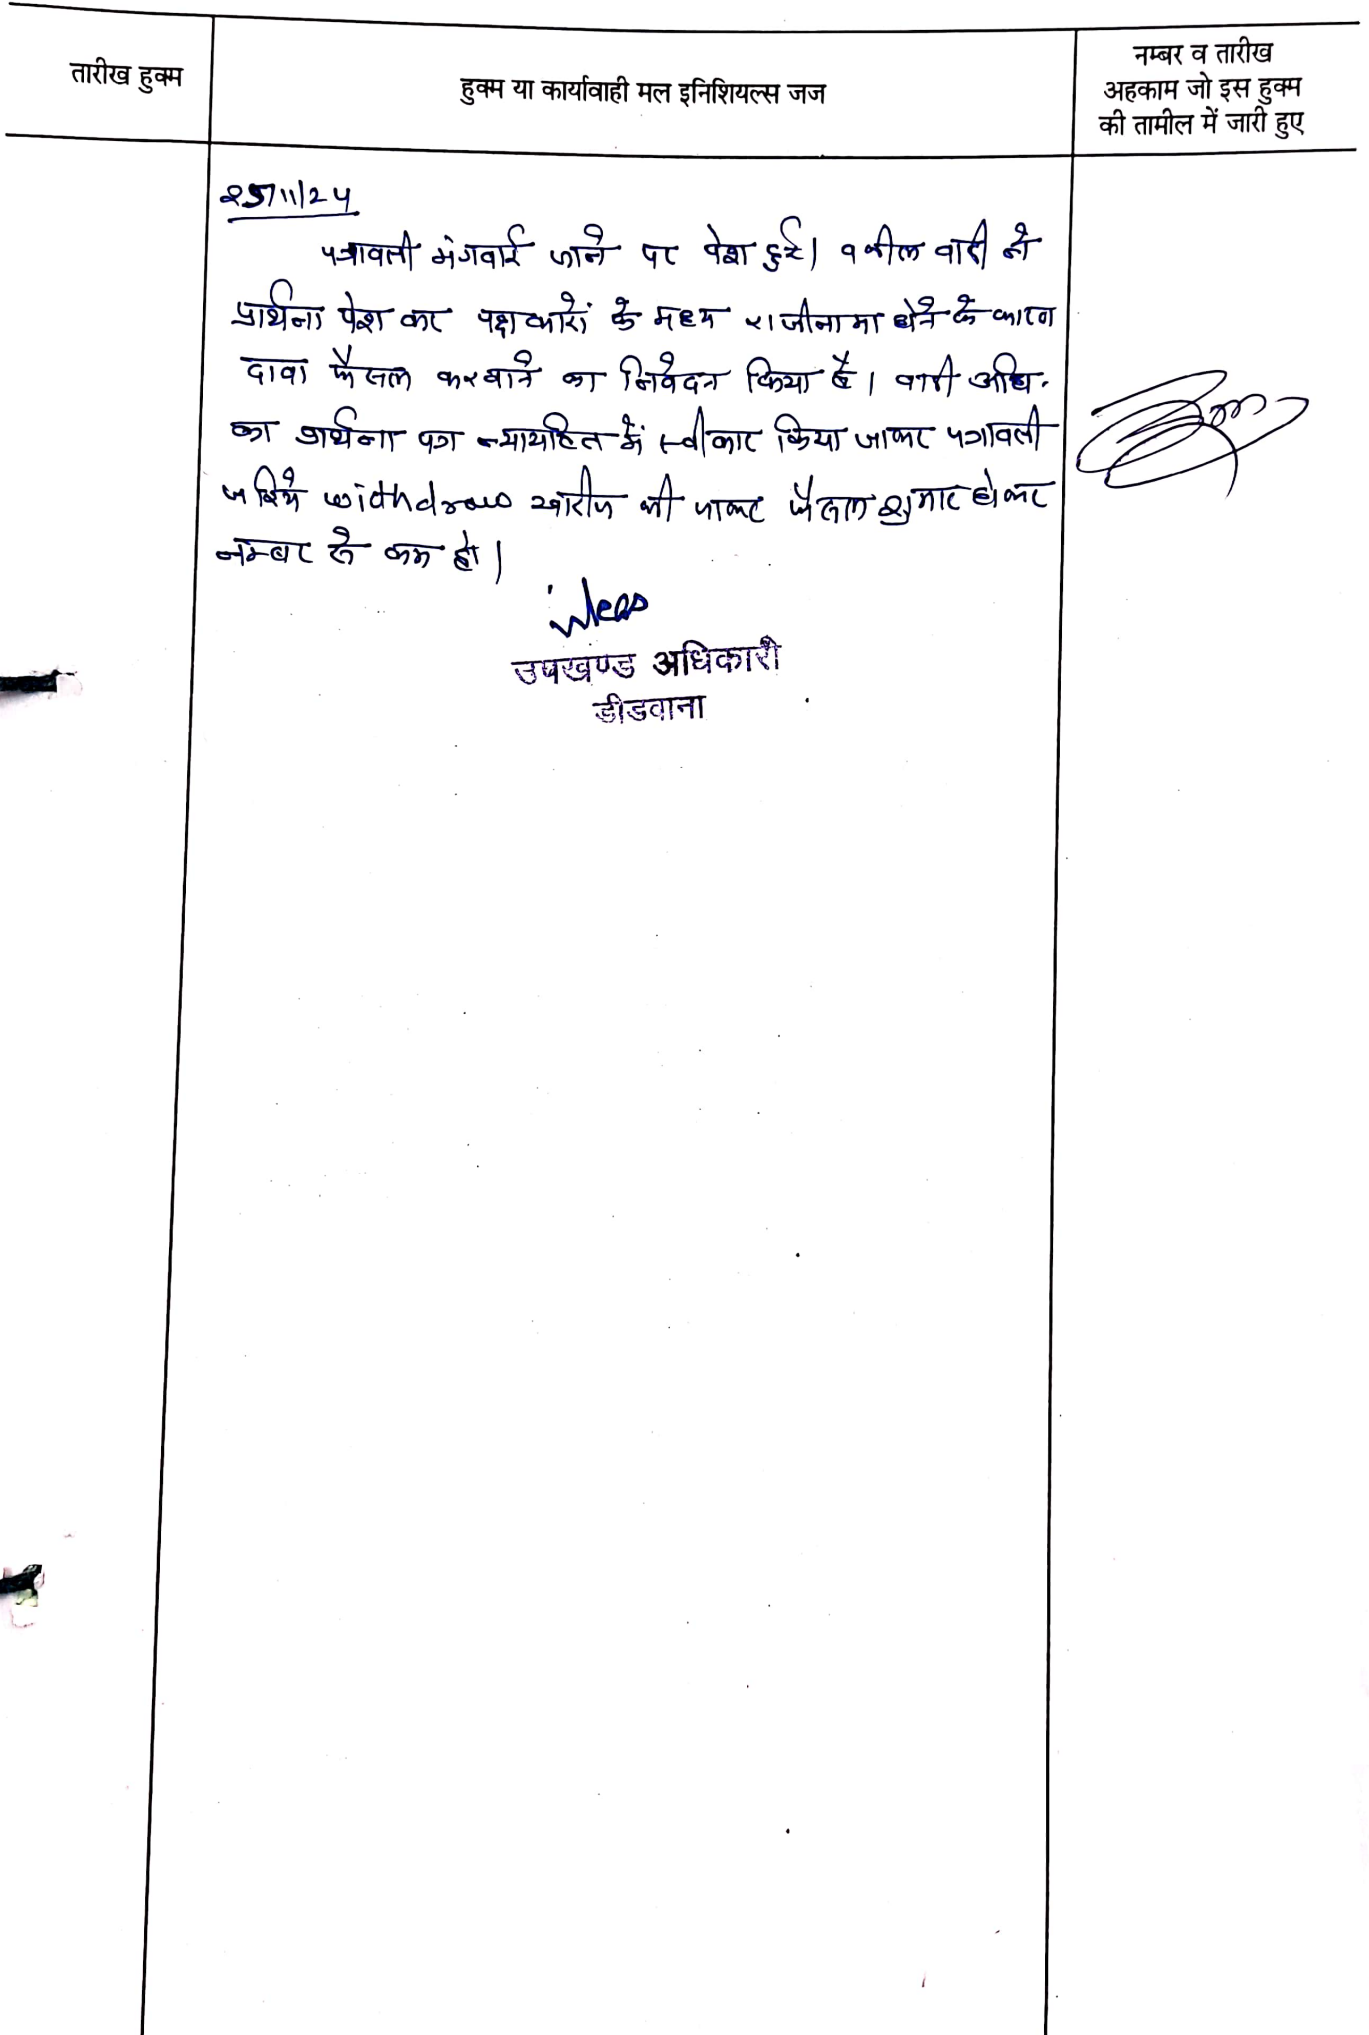 तारीख हुक्म
हुक्म या कार्यावाही मल इनिशियल्स जज
नम्बर व तारीख
अहकाम जो इस हुक्म
की तामील में जारी हुए
25/11/24
पत्रावली मंगवाई जाने पर पेश हुई। वकील वादी ने
प्रार्थना पेश कर पक्षकारों के मध्य राजीनामा होने के कारण
दावा फैसल करवाने का निवेदन किया है। वादी अधि.
का प्रार्थना पत्र न्यायहित में स्वीकार किया जाकर पत्रावली
जरिये withdraw खारीज की जाकर फैसल शुमार होकर
नम्बर से कम हो।
उपखण्ड अधिकारी
डीडवाना